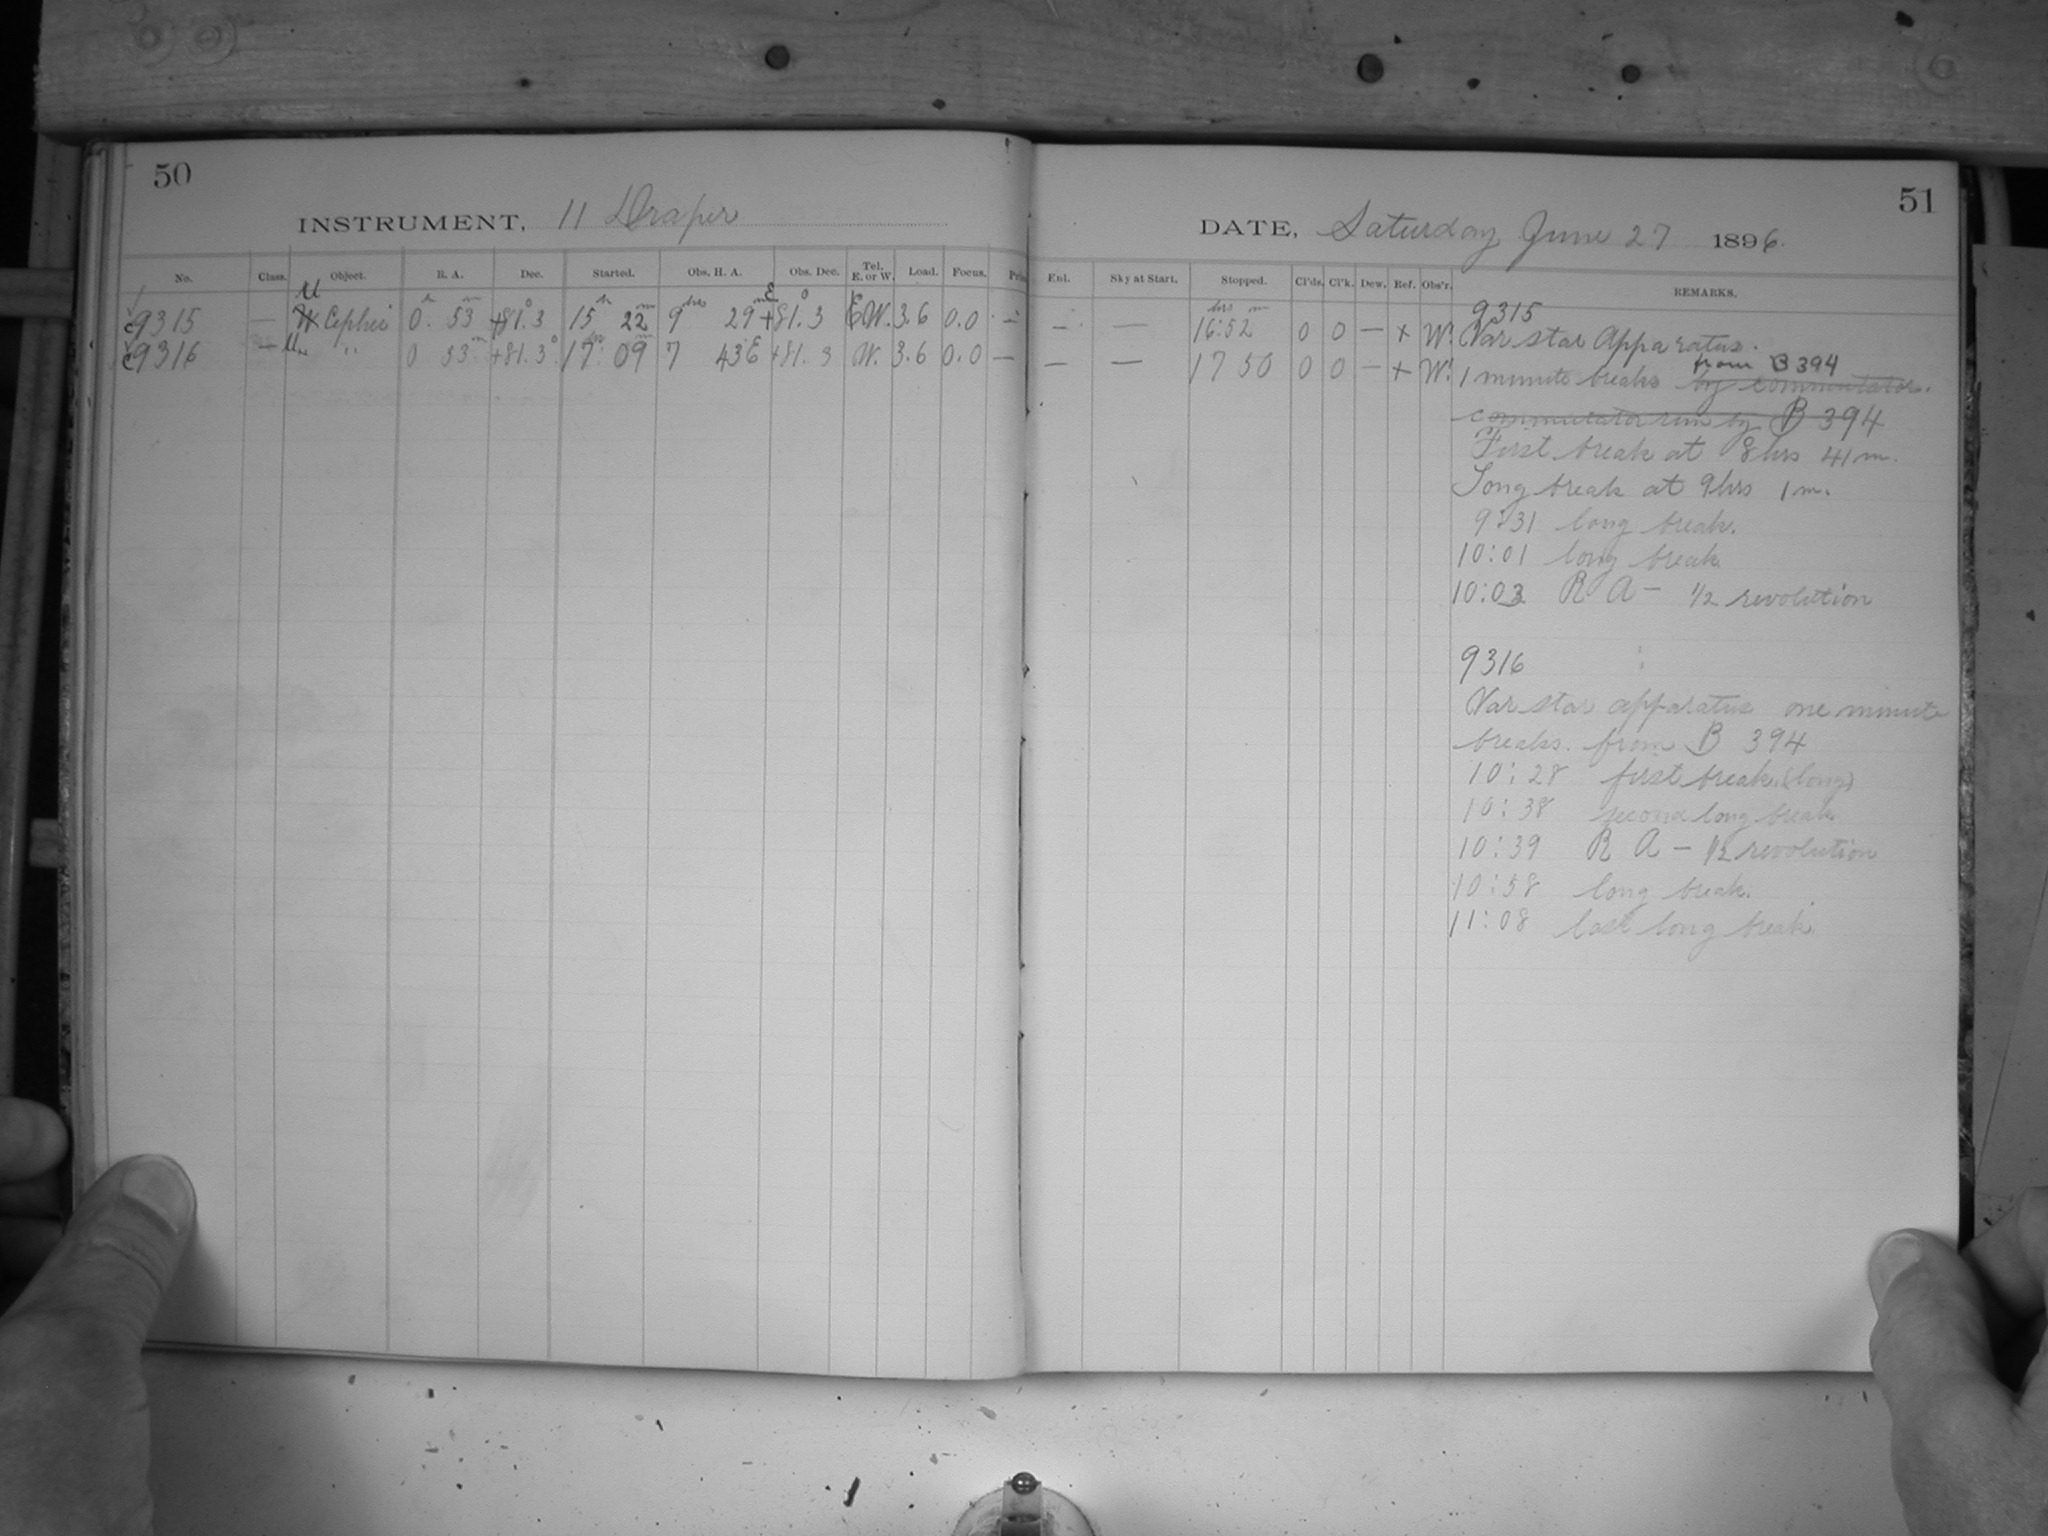 50
INSTRUMENT, 11 Draper
No. Class. Object. R. A. Dec. Started. Obs. H. A. Obs. Dec. Tel. E. or W. Load. Focus.
c9315 — U Cephei 0h 53m +81°.3 15h 22m 9hrs 29m E +81°.3 W. 3.6 0.0 —
c9316 — U " 0 53m +81.3° 17h 09m 7 43 E +81.3 W. 3.6 0.0 —
51
DATE, Saturday June 27 1896.
Enl. Sky at Start. Stopped. Cl'ds. Cl'k. Dew. Ref. Obs'r. REMARKS.
— — 16hrs:52m 0 0 — + W.
— — 17 50 0 0 — + W.
9315
Var star Apparatus.
from B 394
1 minute breaks by commutator.
commutator run by B 394
First break at 8hrs 41m.
Long break at 9hrs 1m.
9:31 long break.
10:01 long break
10:03 R A — 1/2 revolution
9316
Var star apparatus one minute
breaks. from B 394
10:28 first break (long)
10:38 second long break
10:39 R A — 1/2 revolution
10:58 long break.
11:08 last long break.